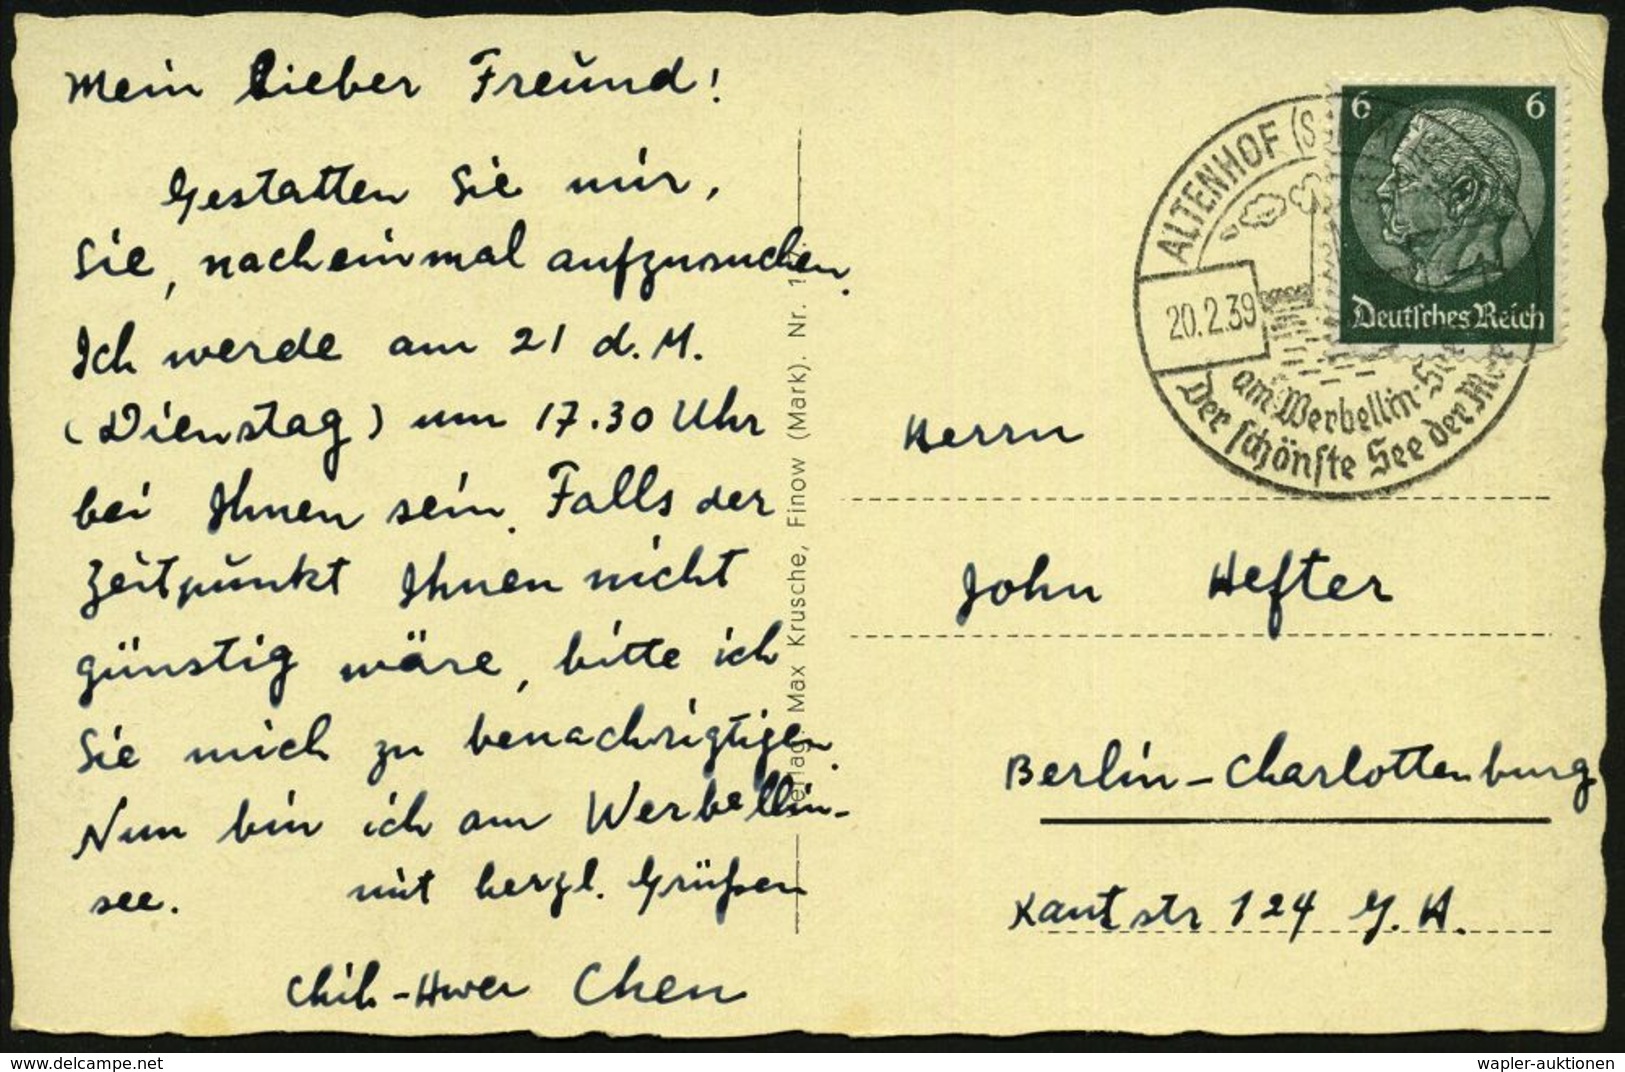 Mein Lieber Freund!
Gestatten Sie mir,
Sie, nach einmal aufzusuchen.
Ich werde am 21 d. M.
(Dienstag) um 17.30 Uhr
bei Ihnen sein. Falls der
Zeitpunkt Ihnen nicht
günstig wäre, bitte ich
Sie mich zu benachrigtigen.
Nun bin ich am Werbellin-
see. mit herzl. Grüßen
Chih-Hwei Chen
Max Krusche, Finow (Mark). Nr. 1
6 6
Deutsches Reich
ALTENHOF (S
20.2.39
am Werbellin-See
Der schönste See der
Herrn
John Hefter
Berlin-Charlottenburg
Kantstr 124 G. H.
delcampe.net
wapler-auktionen